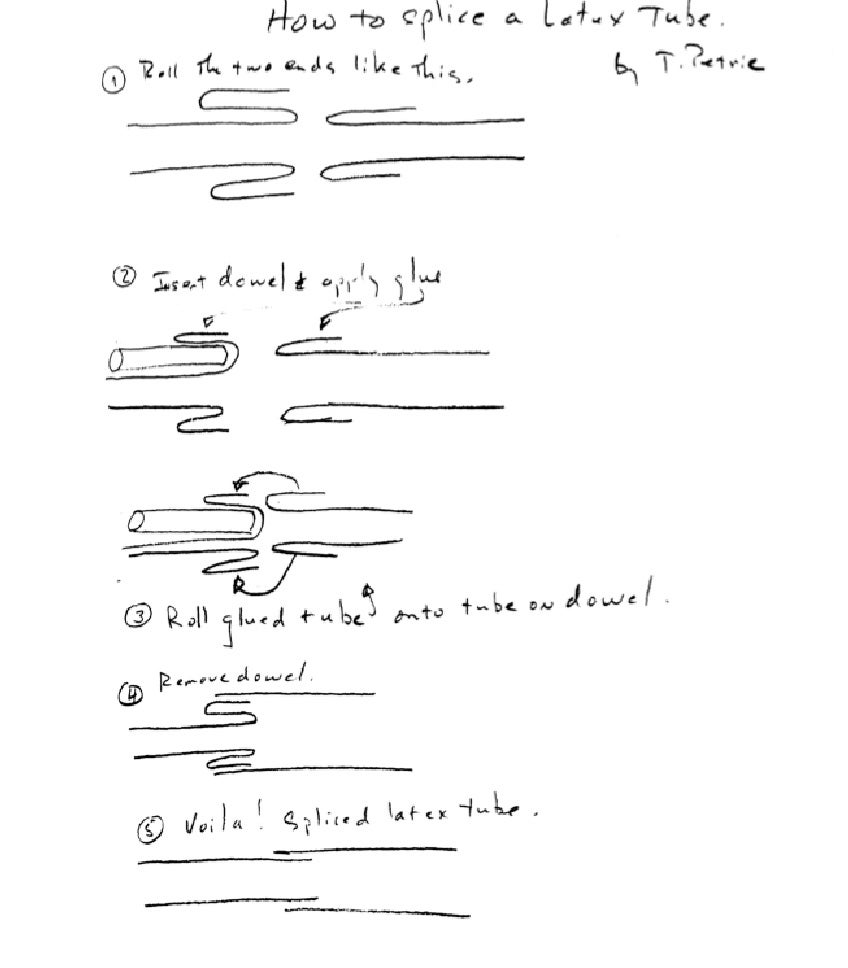 How to splice a Latex Tube.
by T. Petrie
① Roll the two ends like this.
② Insert dowel & apply glue
③ Roll glued tube onto tube on dowel.
④ Remove dowel.
⑤ Voila! Spliced latex tube.